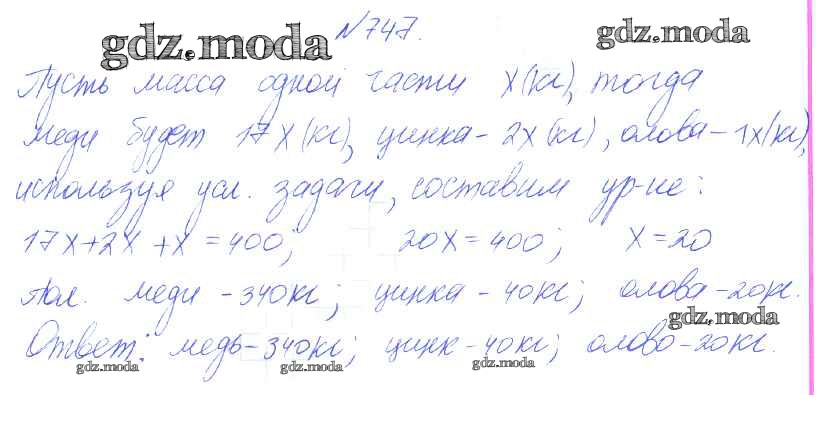 gdz.moda №747. gdz.moda
Пусть масса одной части x(кг), тогда
меди будет 17x(кг), цинка - 2x(кг), олова - 1x(кг),
используя усл. задачи, составим ур-ие:
17x+2x+x=400; 20x=400; x=20
Пол. меди - 340кг; цинка - 40кг; олова - 20кг.
gdz.moda
Ответ: медь - 340кг; цинк - 40кг; олово - 20кг.
gdz.moda gdz.moda gdz.moda